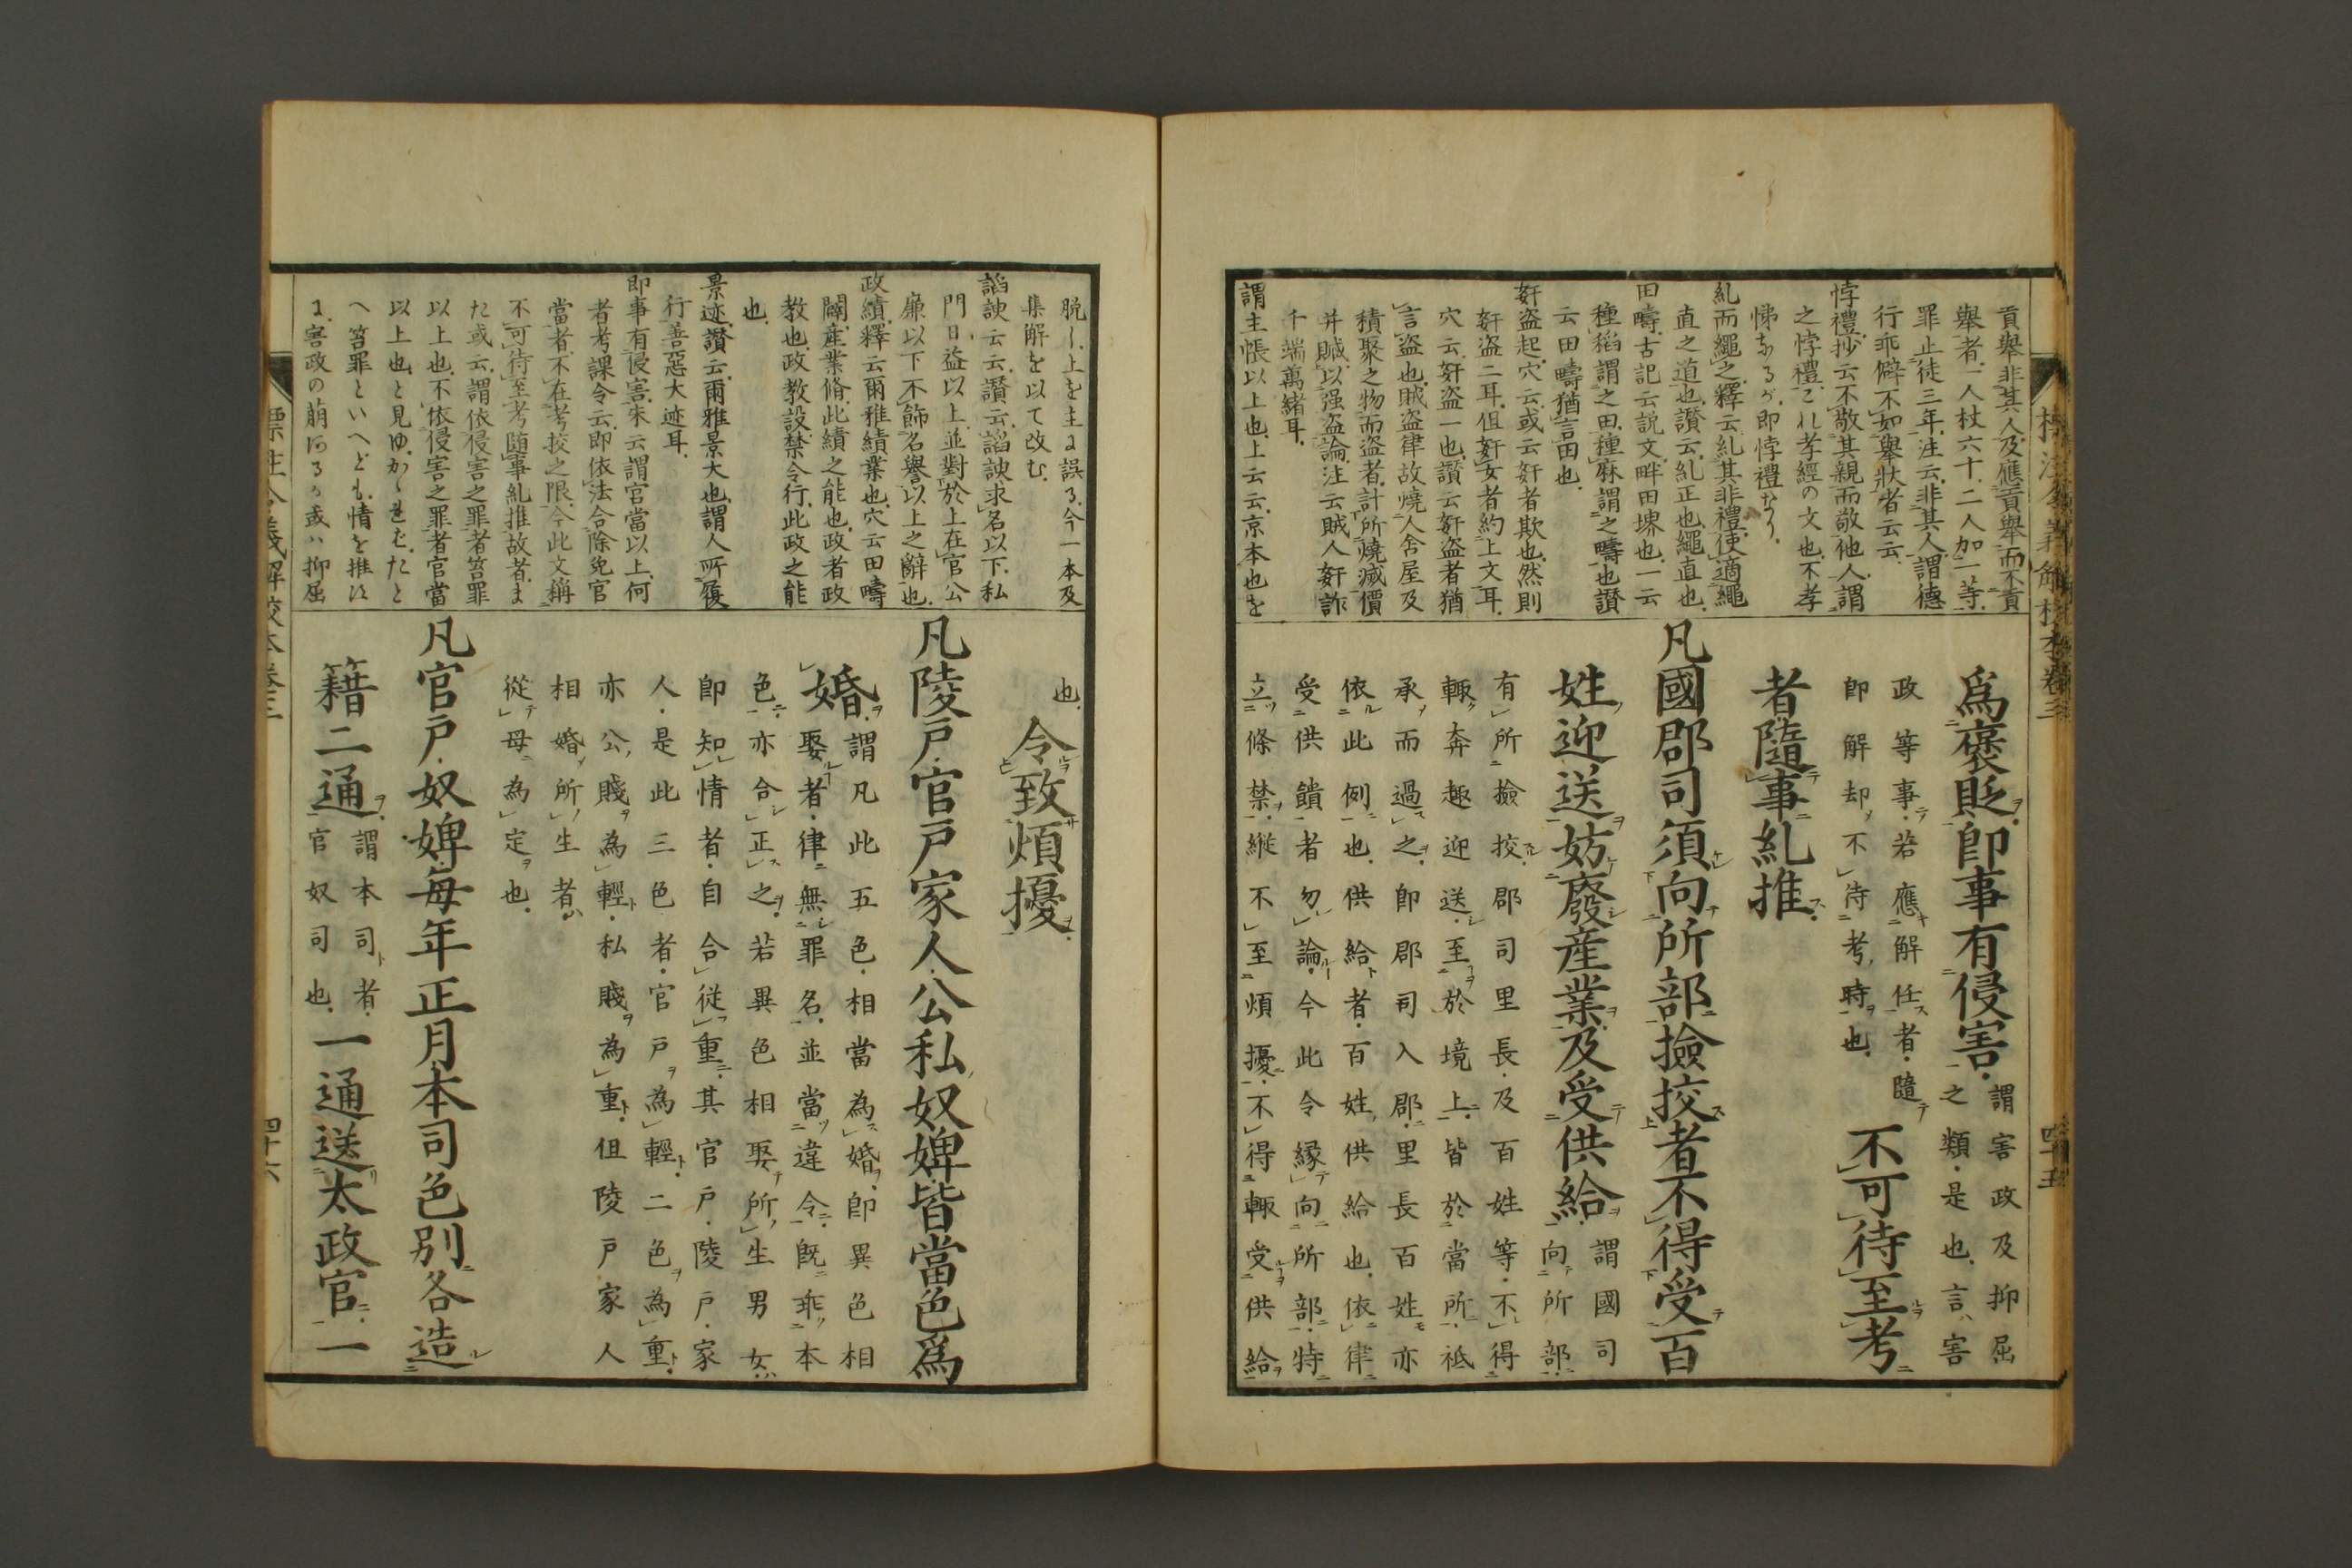 貢舉非其人及應貢舉而不貢
舉者一人杖六十二人加一等
罪止徒三年注云非其人謂德
行乖僻不如舉狀者云云
悖禮抄云不敬其親而敬他人謂
之悖禮これ孝經の文也不孝
悌なるが即悖禮なり
糺而繩之釋云糺其非禮使適繩
直之道也讃云糺正也繩直也
田疇古記云説文畔田堺也一云
種稻謂之田種麻謂之疇也讃
云田疇猶言田也
奸盗起穴云或云奸者欺也然則
奸盗二耳但奸女者約上文耳
穴云奸盗一也讃云奸盗者猶
言盗也賊盗律故燒人舍屋及
積聚之物而盗者計所燒減價
并贓以强盗論注云賊人奸詐
千端萬緒耳
謂主帳以上也上云云京本也を
爲褒貶即事有侵害謂害政及抑屈
之類是也言害
政等事若應解任者隨
即解却不待考時也
不可待至考
者隨事糺推
凡國郡司須向所部撿挍者不得受百
姓迎送妨廢産業及受供給謂國司
向所部
有所撿挍郡司里長及百姓等不得
輙奔趣迎送至於境上皆於當所祗
承而過之即郡司入郡里長百姓亦
依此例也供給者百姓供給也依律
受供饋者勿論今此令縁向所部特
立條禁縱不至煩擾不得輙受供給
四十五
脱し上を主に誤る今一本及
集解を以て改む
諂諛云云讃云諂諛求名以下私
門日益以上並對於上在官公
廉以下不飾名譽以上之辭也
政績釋云爾雅績業也穴云田疇
闢産業脩此績之能也政者政
教也政教設禁令行此政之能
也
景迹讃云爾雅景大也謂人所履
行善惡大迹耳
即事有侵害朱云謂官當以上何
者考課令云即依法合除免官
當者不在考挍之限今此文稱
不可待至考随事糺推故者ま
た或云謂依侵害之罪者笞罪
以上也不依侵害之罪者官當
以上也と見ゆ
へ笞罪といへども情を推
に害政の萠あるか或ハ抑屈
也
令致煩擾
凡陵戸官戸家人公私奴婢皆當色爲
婚謂凡此五色相當為婚即異色相
娶者律無罪名並當違令既乖本
色亦合正之若異色相娶所生男女
即知情者自合從重其官戸陵戸家
人是此三色者官戸為輕二色為重
亦公賤為輕私賤為重但陵戸家人
相婚所生者
從母為定也
凡官戸奴婢毎年正月本司色別各造
籍二通謂本司者
官奴司也
一通送太政官一
標注令義解挍本巻三
四十六